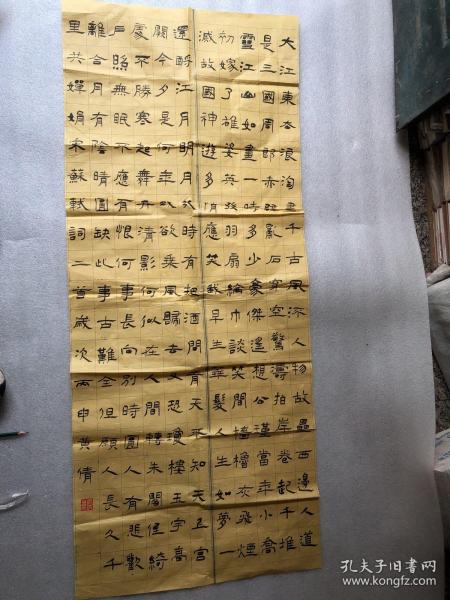 大江東去浪淘盡千古風流人物故壘西邊人道
是三國周郎赤壁亂石穿空驚濤拍岸卷起千堆
雪江山如畫一時多少豪傑遙想公瑾當年小喬
初嫁了雄姿英發羽扇綸巾談笑間檣櫓灰飛煙
滅故國神遊多情應笑我早生華髮人生如夢一
還酹江月明月幾時有把酒問青天不知天上宮
闕今夕是何年我欲乘風歸去又恐瓊樓玉宇高
處不勝寒起舞弄清影何似在人間轉朱閣低綺
戶照無眠不應有恨何事長向別時圓人有悲歡
離合月有陰晴圓缺此事古難全但願人長久千
里共嬋娟宋蘇軾詞二首歲次丙申黃倩
孔夫子旧书网